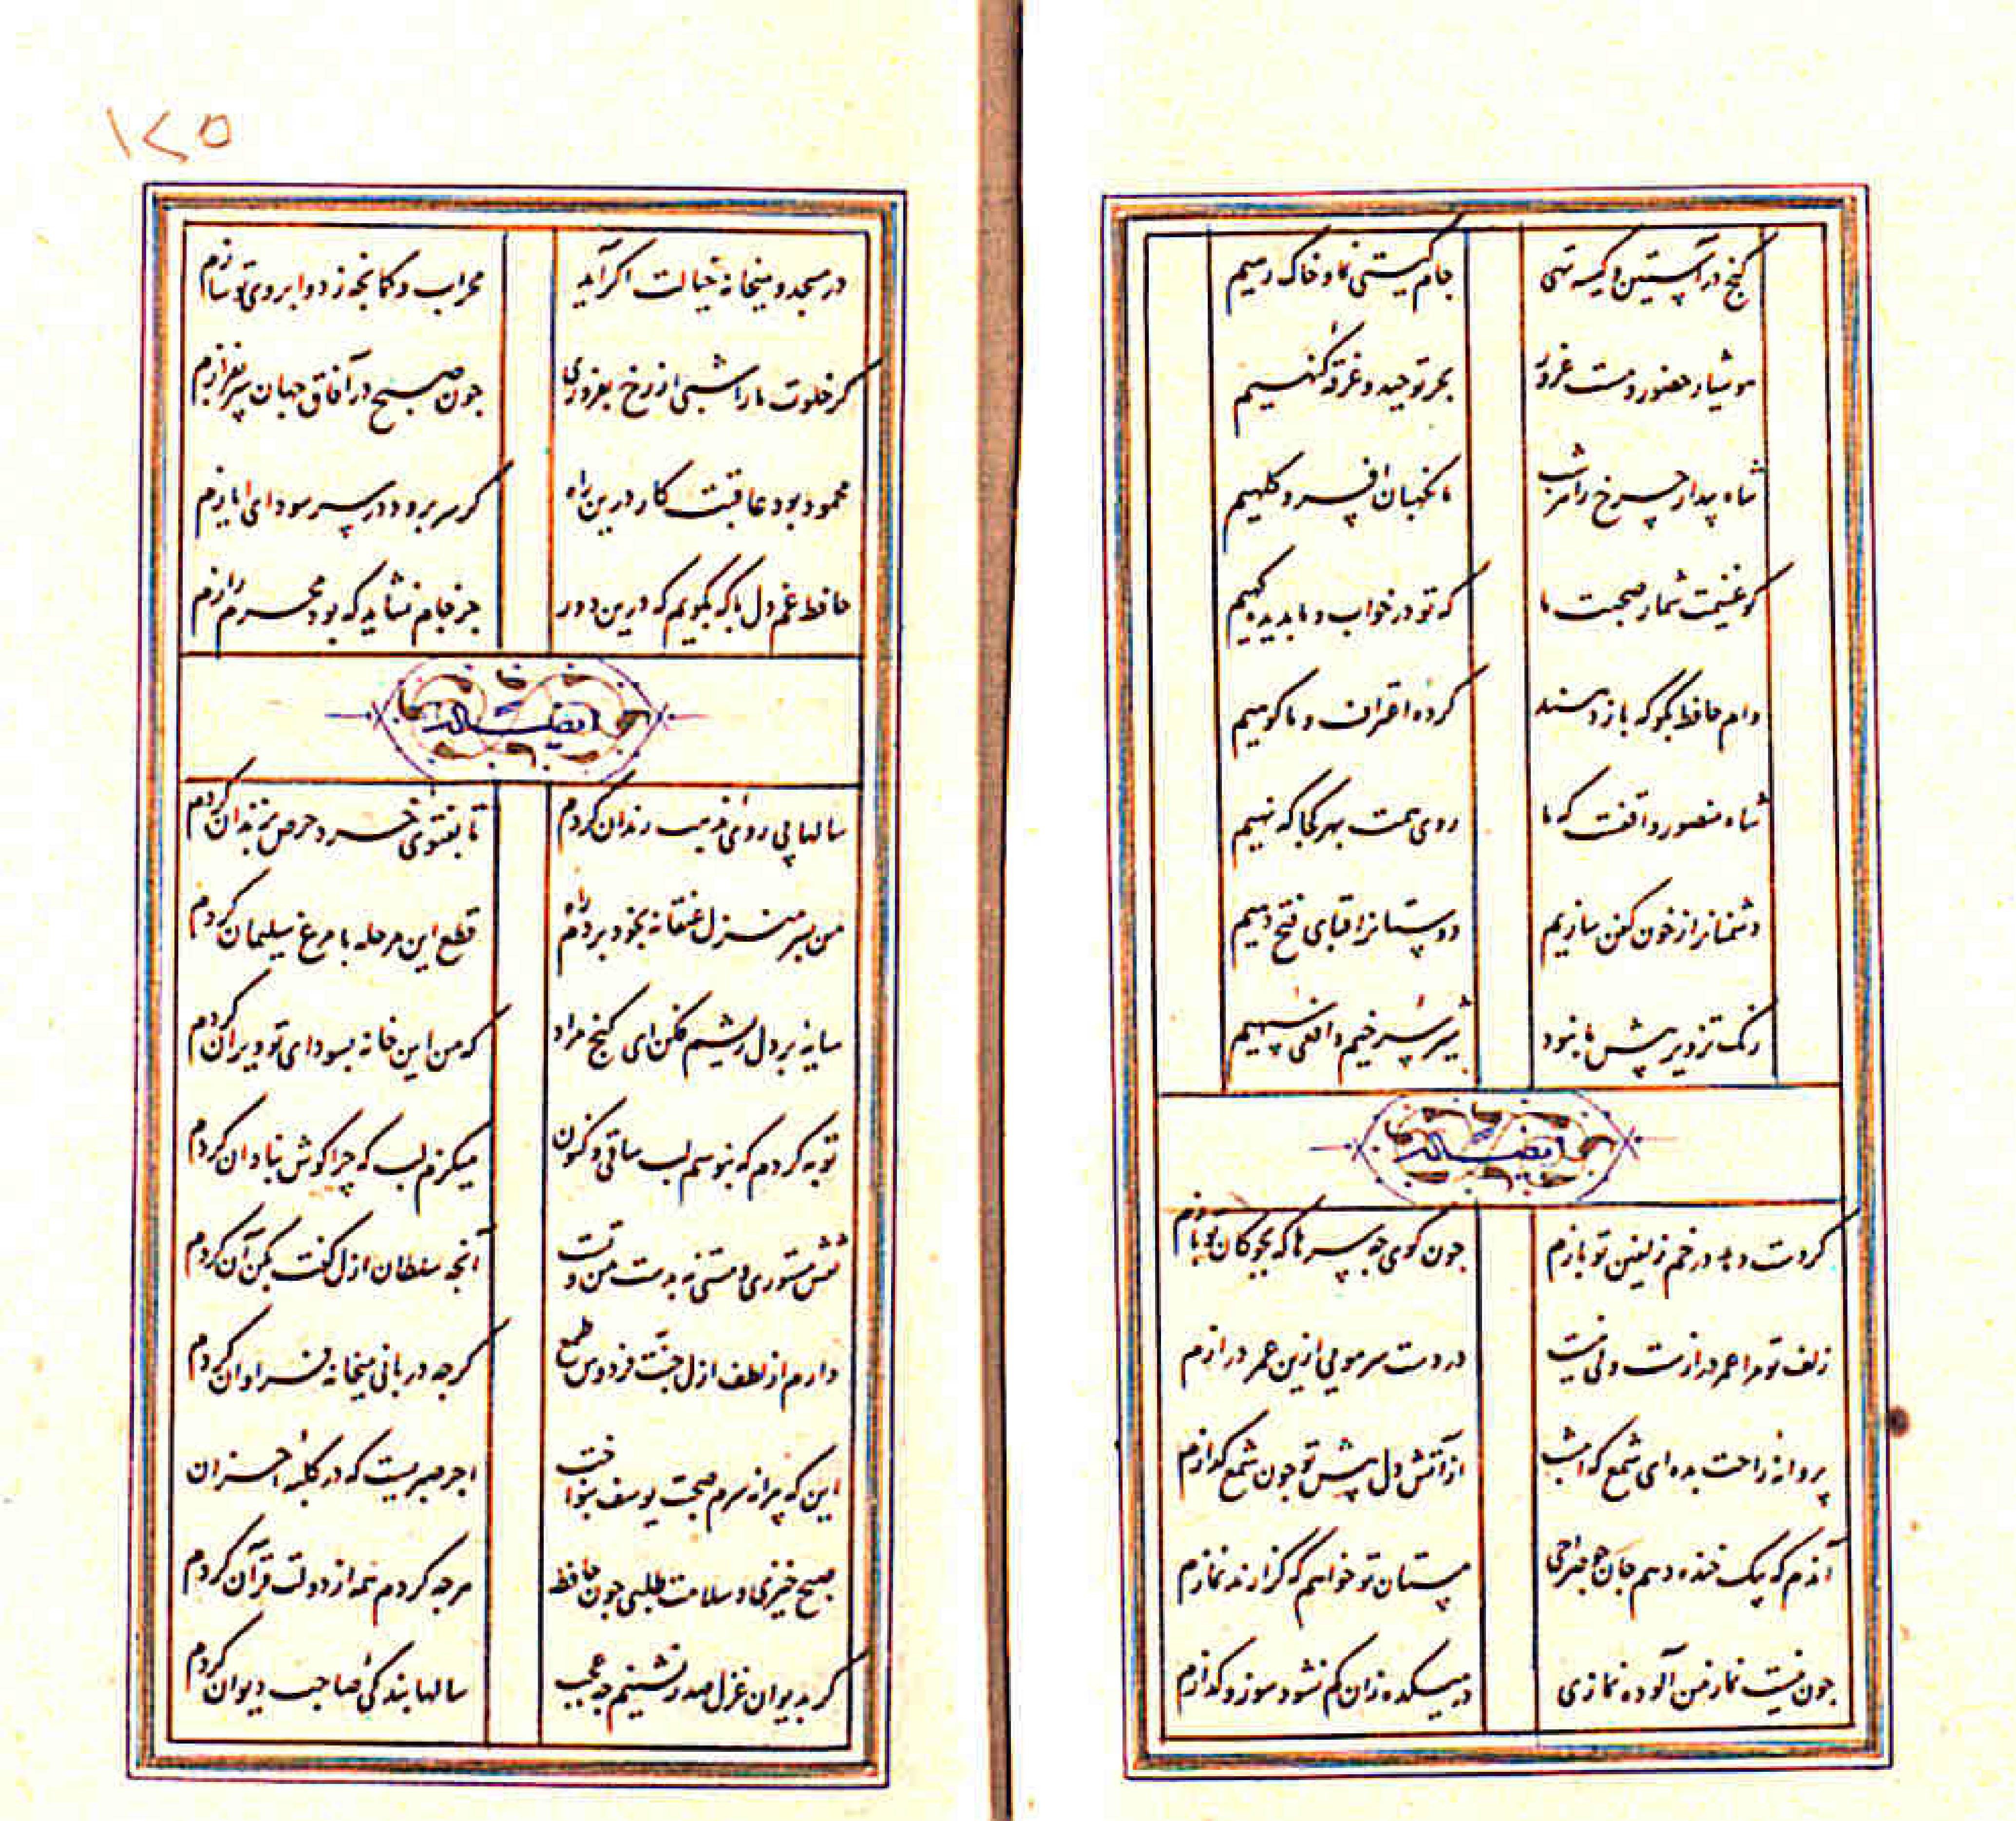 گنج در آستین و کیسه تهی جام گیتی نما و خاک رهیم
هوشیار حضور و مست غرور بحر توحید و غرقه گنهیم
شاه بیدار چرخ را هر شب ما نگهبان افسر و کلهیم
گو غنیمت شمار صحبت ما که تو در خواب و ما بدیده گهیم
وام حافظ بگو که باز دهند کرده اعتراف و ما گوهیم
شاه منصور واقفست که ما روی همت بهر کجا که نهیم
دشمنانرا ز خون کفن سازیم دوستانرا قبای فتح دهیم
رنگ تزویر پیش ما نبود شیر سرخیم و افعی سیهیم
ایضاً له
گر دست دهد در خم زلفین تو بازم چون گوی چه سرها که بچوگان تو بازم
زلف تو مرا عمر درازست ولی نیست در دست سر مویی ازین عمر درازم
پروانه راحت بده ای شمع که امشب از آتش دل پیش تو چون شمع گدازم
آندم که بیک خنده دهم جان چو صراحی مستان تو خواهم که گزارند نمازم
چون نیست نماز من آلوده نمازی در میکده زان کم نشود سوز و گدازم
۱۷۵
در مسجد و میخانه خیالت اگر آید محراب و کمانچه ز دو ابروی تو سازم
گر خلوت ما را شبی از رخ بفروزی چون صبح در آفاق جهان سر بفرازم
محمود بود عاقبت کار درین راه گر سر برود در سر سودای ایازم
حافظ غم دل با که بگویم که درین دور جز جام نشاید که بود محرم رازم
ایضاً له
سالها پی روی مذهب رندان کردم تا بفتوی خرد حرص بزندان کردم
من بسر منزل عنقا نه بخود بردم راه قطع این مرحله با مرغ سلیمان کردم
سایه بر دل ریشم فکن ای گنج مراد که من این خانه بسودای تو ویران کردم
توبه کردم که نبوسم لب ساقی و کنون میگزم لب که چرا گوش بنادان کردم
نقش مستوری و مستی نه بدست من و تست آنچه سلطان ازل گفت بکن آن کردم
دارم از لطف ازل جنت فردوس طمع گرچه دربانی میخانه فراوان کردم
این که پیرانه سرم صحبت یوسف بنواخت اجر صبریست که در کلبه احزان کردم
صبح خیزی و سلامت طلبی چون حافظ هرچه کردم همه از دولت قرآن کردم
گر بدیوان غزل صدر نشینم چه عجب سالها بندگی صاحب دیوان کردم